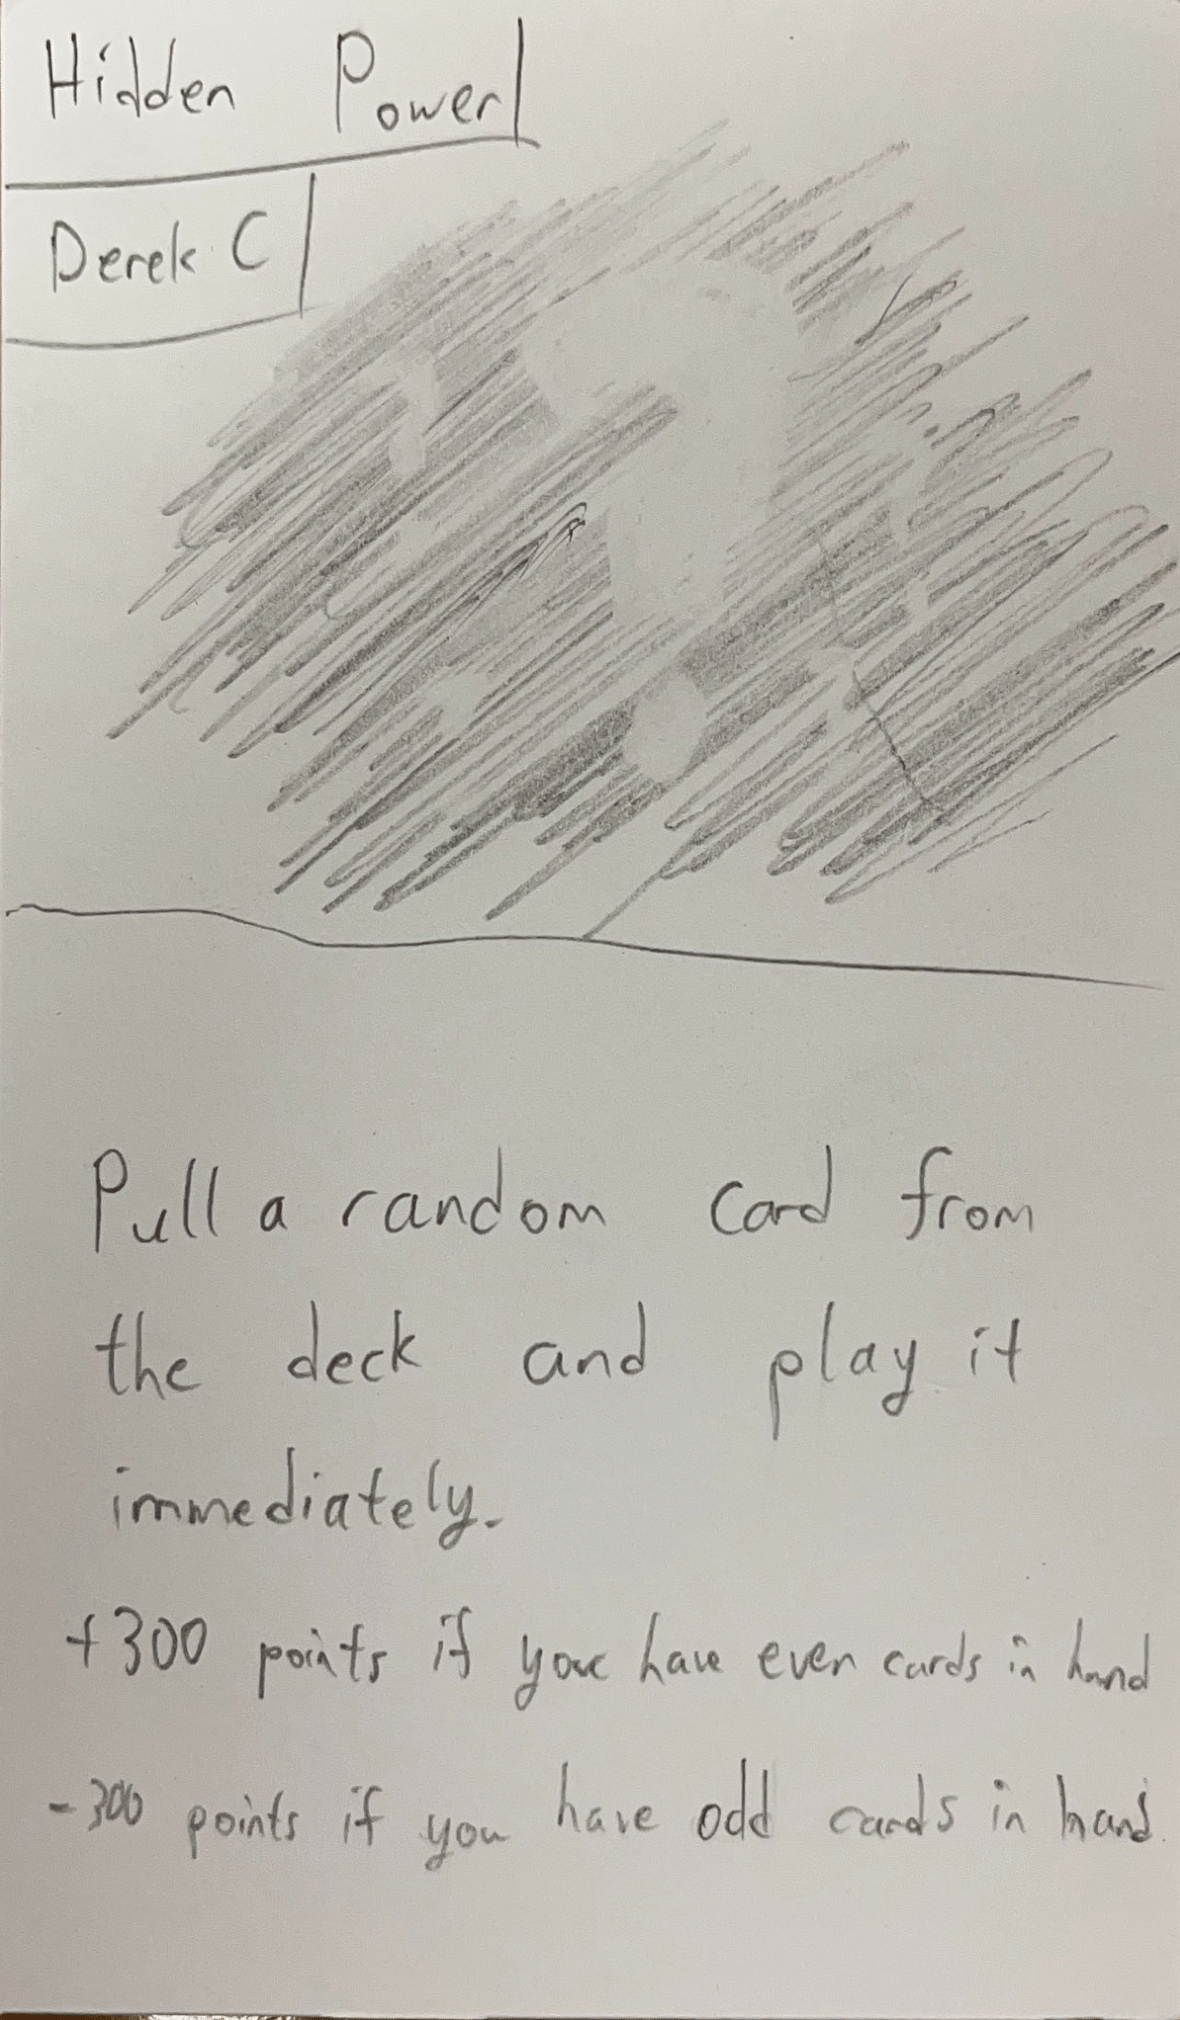 Hidden Power
Derek C
Pull a random card from
the deck and play it
immediately.
+300 points if you have even cards in hand
-300 points if you have odd cards in hand